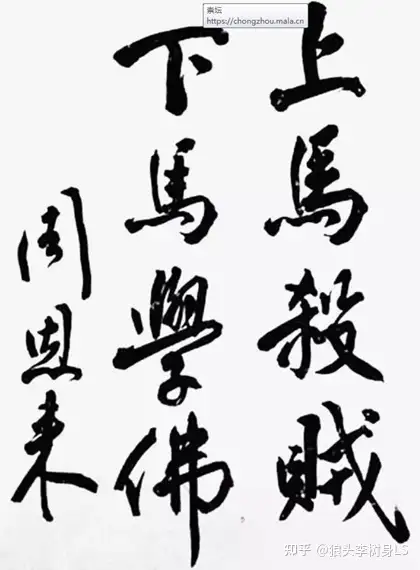 上馬殺賊
下馬學佛
周恩来
崇坛
https://chongzhou.mala.cn
知乎 @狼头李树身LS